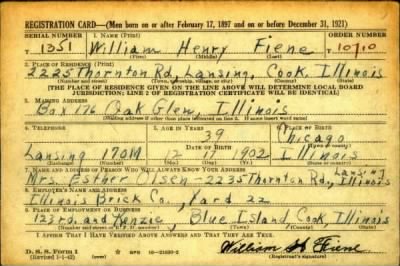 REGISTRATION CARD—(Men born on or after February 17, 1897 and on or before December 31, 1921)
SERIAL NUMBER 1. NAME (Print) ORDER NUMBER
T 1351 William Henry Fiene 10710
(First) (Middle) (Last)
2. PLACE OF RESIDENCE (Print)
2225 Thornton Rd, Lansing, Cook, Illinois
(Number and street) (Town, township, village, or city) (County) (State)
[THE PLACE OF RESIDENCE GIVEN ON THE LINE ABOVE WILL DETERMINE LOCAL BOARD
JURISDICTION; LINE 2 OF REGISTRATION CERTIFICATE WILL BE IDENTICAL]
3. MAILING ADDRESS
Box 176 Oak Glen, Illinois
(Mailing address if other than place indicated on line 2. If same insert word same)
4. TELEPHONE 5. AGE IN YEARS 6. PLACE OF BIRTH
39 Chicago
DATE OF BIRTH (Town or county)
Lansing 170M 12 1902 Illinois
(Exchange) (Number) (Mo.) (Day) (Yr.) (State or country)
7. NAME AND ADDRESS OF PERSON WHO WILL ALWAYS KNOW YOUR ADDRESS Lansing
Mrs. Esther Olsen - 2235 Thornton Rd, Illinois
8. EMPLOYER'S NAME AND ADDRESS
Illinois Brick Co., Yard 22
9. PLACE OF EMPLOYMENT OR BUSINESS
123rd and Kenzie, Blue Island, Cook, Illinois
(Number and street or R. F. D. number) (Town) (County) (State)
I AFFIRM THAT I HAVE VERIFIED ABOVE ANSWERS AND THAT THEY ARE TRUE.
D. S. S. Form 1 William H Fiene
(Revised 1-1-42) (over) 16—21630-2 (Registrant's signature)